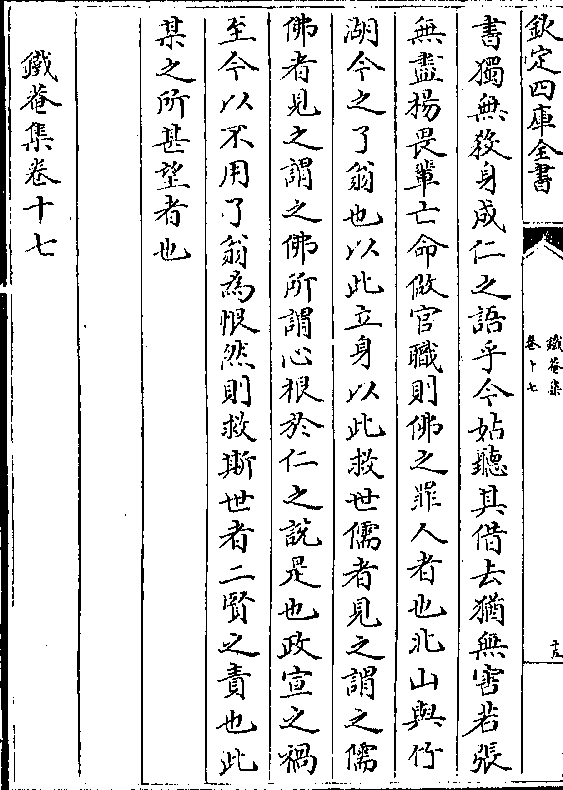 欽定四庫全書
鐵菴集
卷十七
十五
書獨無殺身成仁之語乎今姑聽其借去猶無害若張
無盡楊畏輩亡命做官職則佛之罪人者也北山與竹
湖今之了翁也以此立身以此救世儒者見之謂之儒
佛者見之謂之佛所謂心根於仁之說是也政宣之禍
至今以不用了翁為恨然則救斯世者二賢之責也此
某之所甚望者也
鐵菴集卷十七